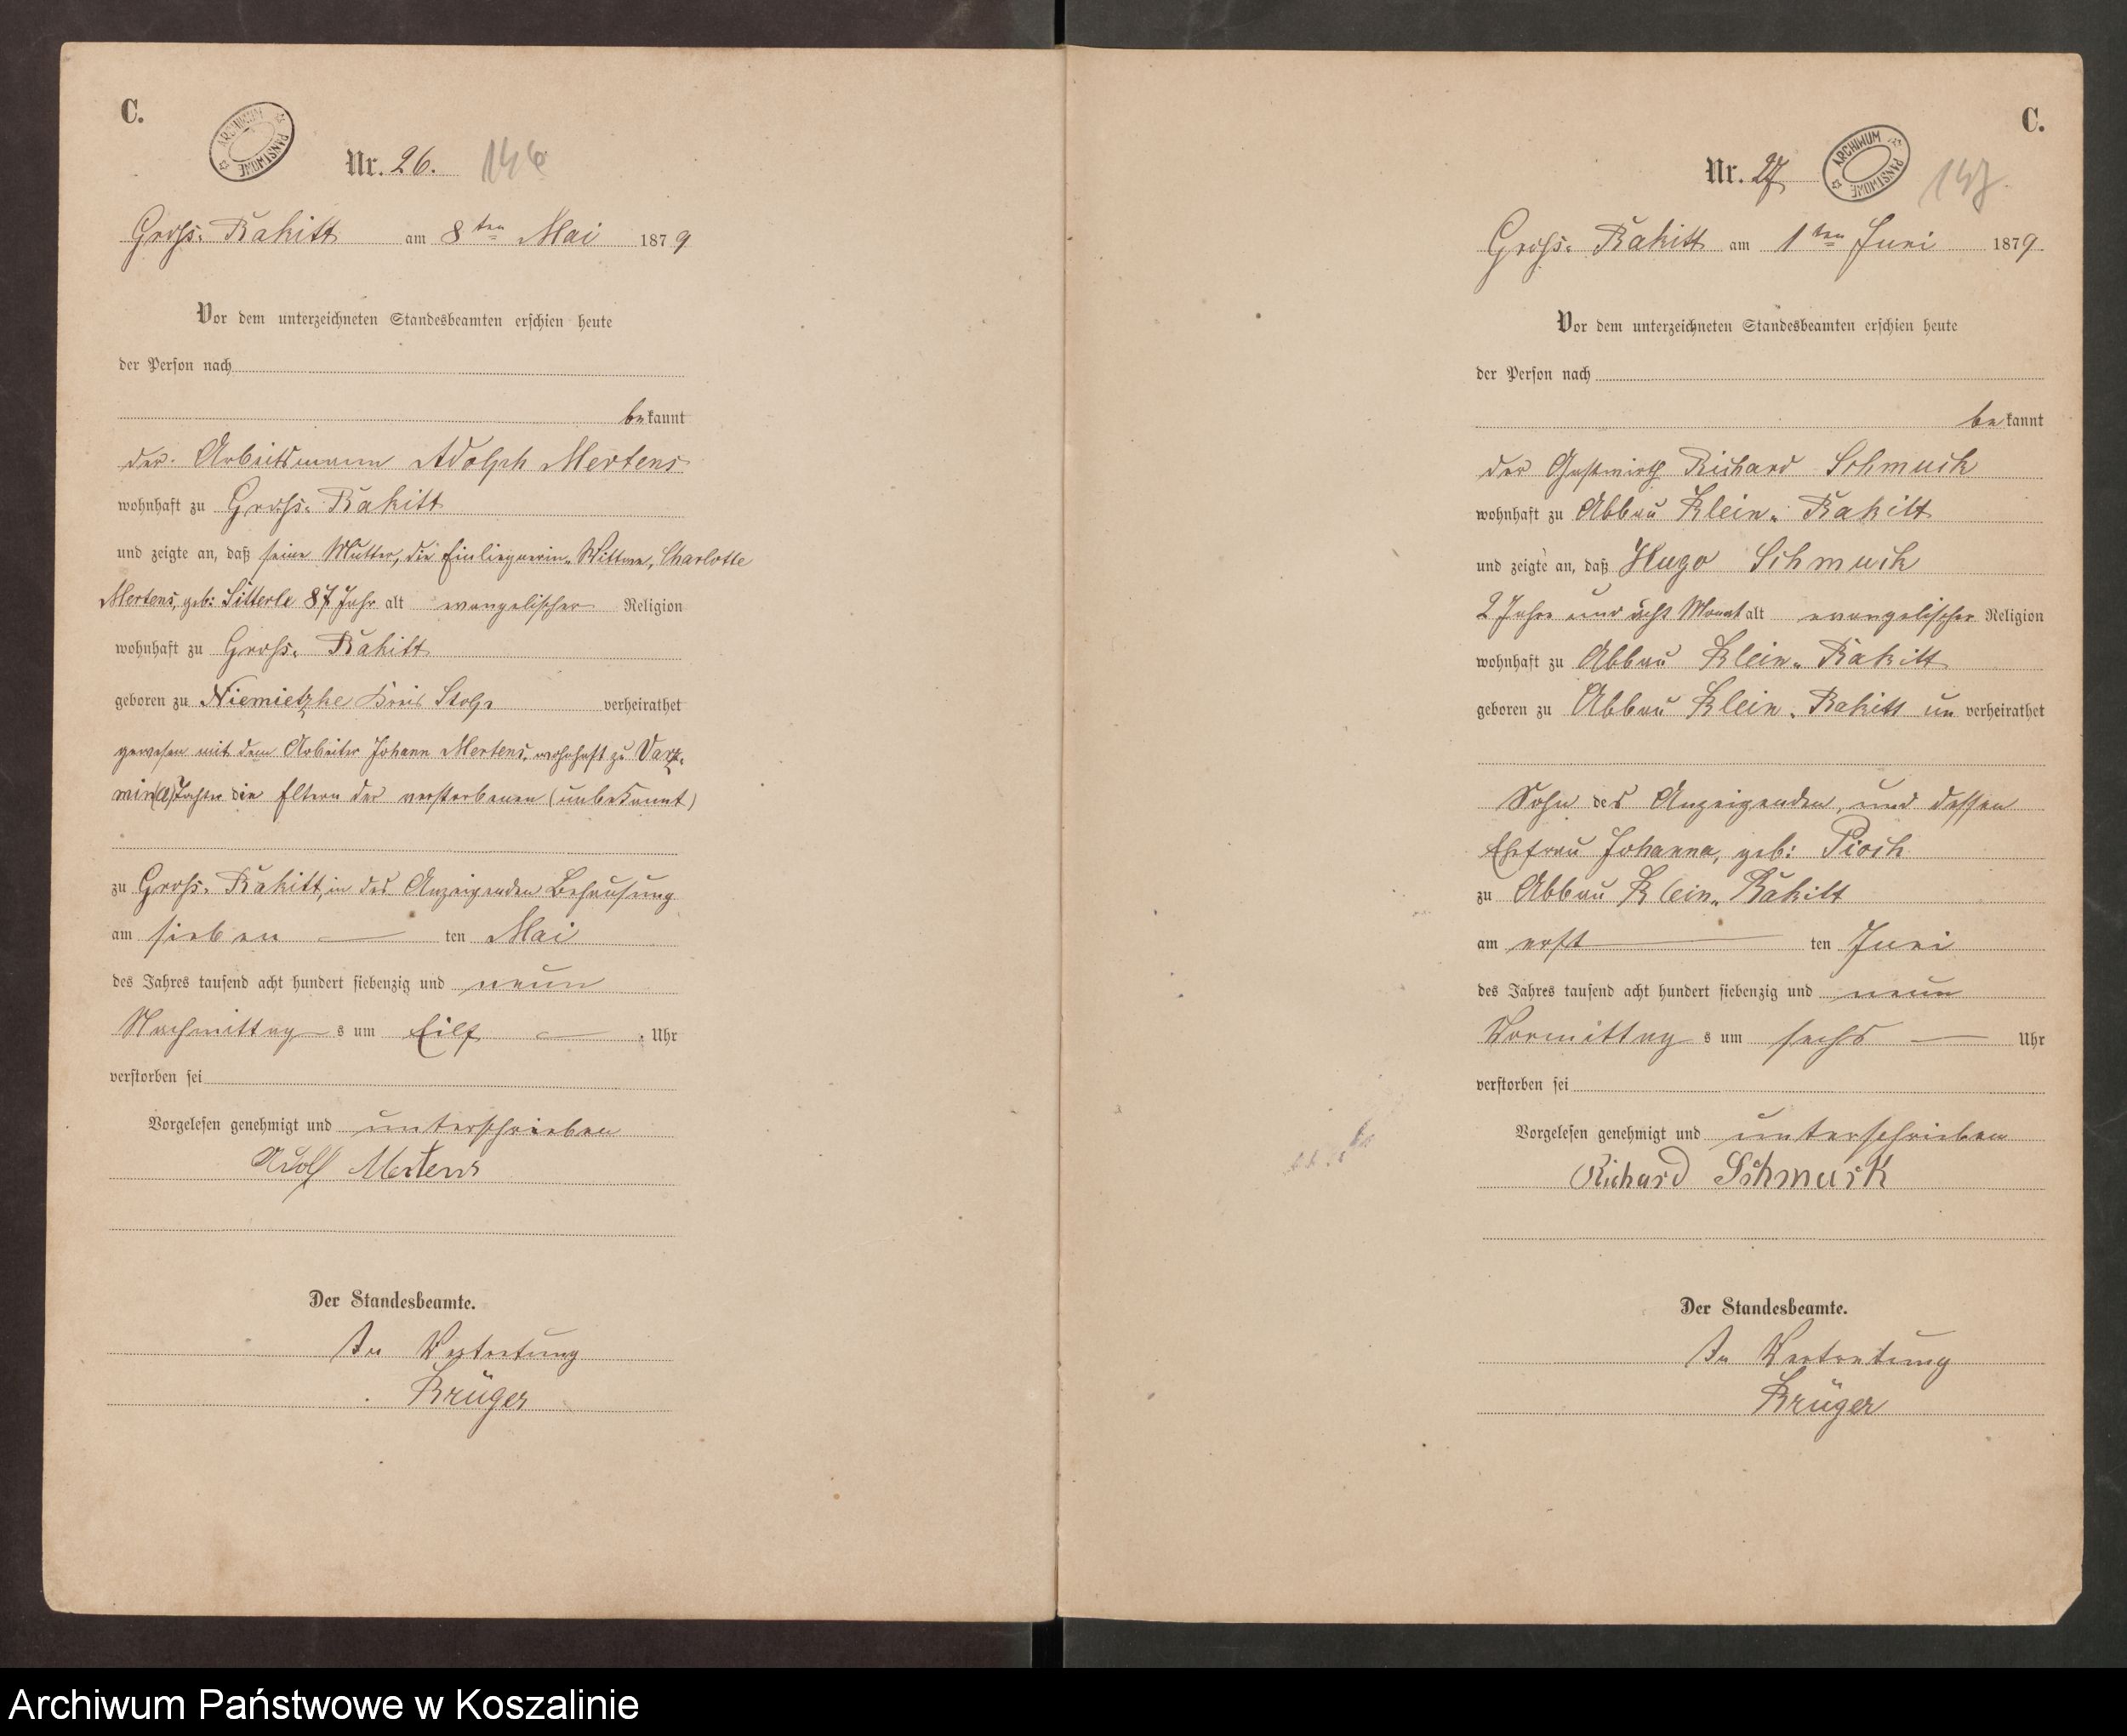 C.
ARCHIWUM PAŃSTWOWE
Nr. 26. 146
Gross-Rakitt am 8ten Mai 1879
Vor dem unterzeichneten Standesbeamten erschien heute
der Person nach
bekannt
der Arbeitsmann Adolph Mertens
wohnhaft zu Gross-Rakitt
und zeigte an, daß seine Mutter, die Einliegerin-Wittwe, Charlotte
Mertens, geb: Sitterle 87 Jahr alt evangelischer Religion
wohnhaft zu Gross-Rakitt
geboren zu Niemietzke Kreis Stolp verheirathet
gewesen mit dem Arbeiter Johann Mertens, wohnhaft zu Varz-
min Tochter die Eltern der verstorbenen (unbekannt)
zu Gross-Rakitt, in des Anzeigenden Behausung
am sieben ten Mai
des Jahres tausend acht hundert siebenzig und neun
Nachmittag s um Eilf Uhr
verstorben sei
Vorgelesen genehmigt und unterschrieben
Adolf Mertens
Der Standesbeamte.
In Vertretung
Krüger
C.
Nr. 27 ARCHIWUM PAŃSTWOWE 147
Gross-Rakitt am 1ten Juni 1879
Vor dem unterzeichneten Standesbeamten erschien heute
der Person nach
bekannt
der Gastwirth Richard Schmuck
wohnhaft zu Abbau Klein-Rakitt
und zeigte an, daß Hugo Schmuck
2 Jahre und acht Monat alt evangelischer Religion
wohnhaft zu Abbau Klein-Rakitt
geboren zu Abbau Klein-Rakitt un verheirathet
Sohn des Anzeigenden, und dessen
Ehefrau Johanna, geb: Pioch
zu Abbau Klein-Rakitt
am erst ten Juni
des Jahres tausend acht hundert siebenzig und neun
Vormittag s um sechs Uhr
verstorben sei
Vorgelesen genehmigt und unterschrieben
Richard Schmuck
Der Standesbeamte.
In Vertretung
Krüger
Archiwum Państwowe w Koszalinie